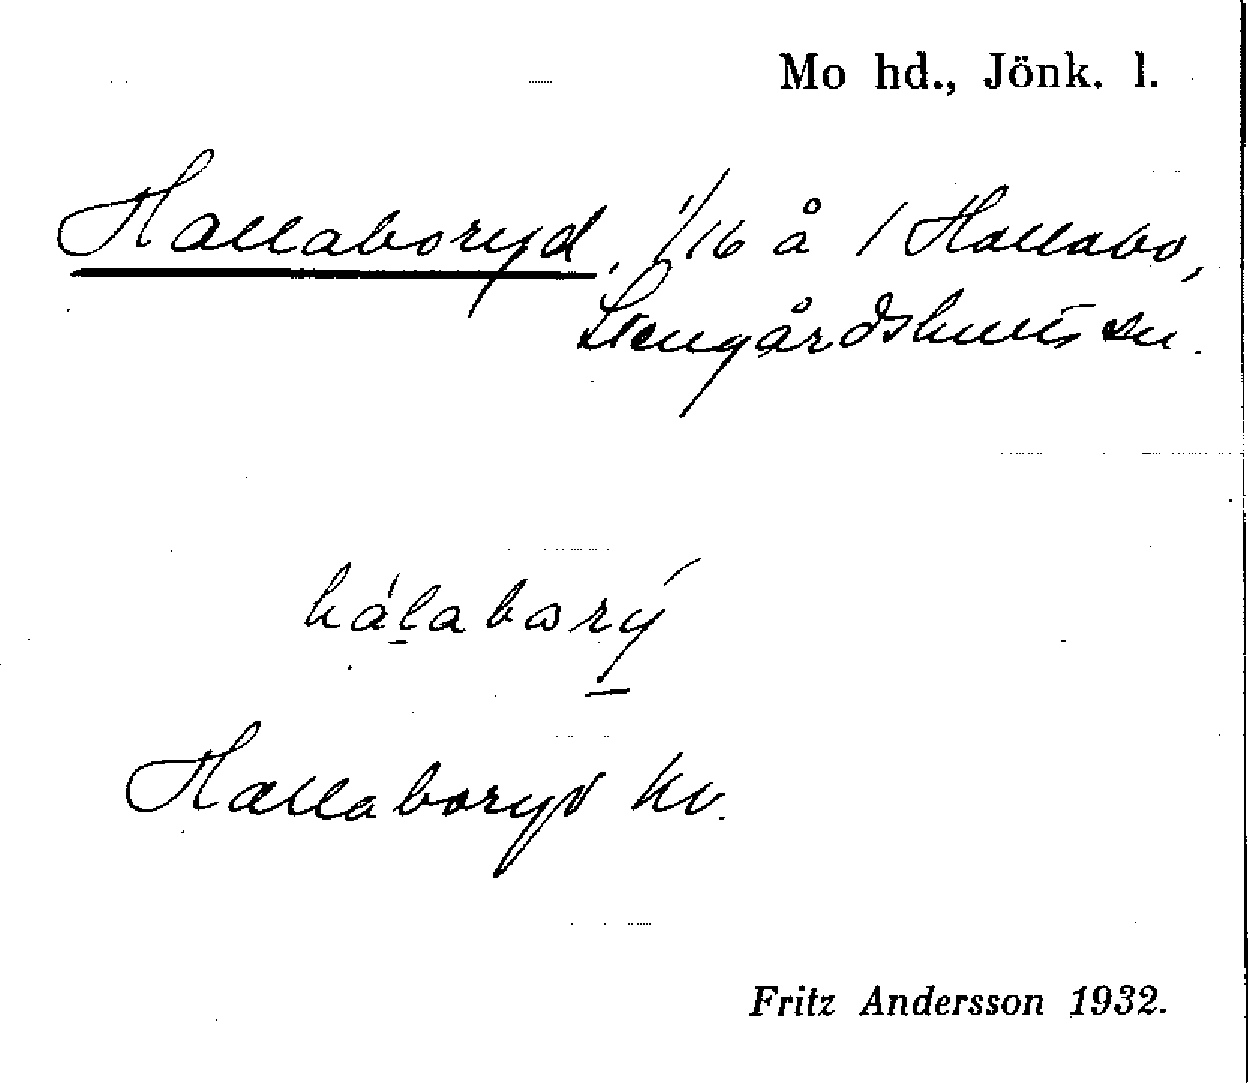 Mo hd., Jönk. l.
Hallaboryd, 1/16 å 1 Hallabo,
Stengårdshults sn.
hálabωrý
Hallaboryd kv.
Fritz Andersson 1932.